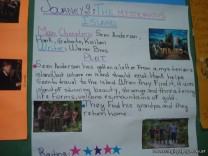 JOURNEY 2: THE MYSTERIOUS
ISLAND
Main Characters: Sean Anderson,
Hank, Gabato, Kailani
Writers: Warner Bros
PLOT
Sean Anderson has got a letter from a mysterious
island, but where no island should exist. Hank helps
Sean to travel to that island. When they find it, it was an
island of stunning beauty, strange and threatening
life forms, volcanoes, mountains of gold.
They find his grandpa and they
return home.